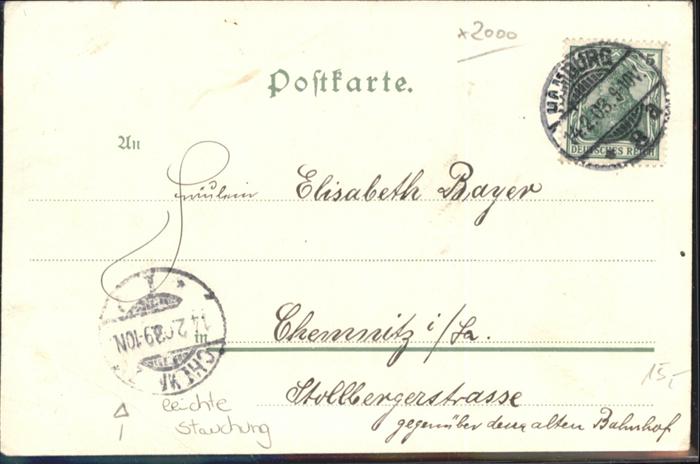 x2000
5
Postkarte.
HAMBURG
.2.03.9-10N.
* 8 a
DEUTSCHES REICH
An
Fräulein Elisabeth Bayer
14.2.03.9-10N.
Chemnitz i/Sa.
in
15,-
Stollbergerstrasse
leichte
Stauchung
gegenüber dem alten Bahnhof